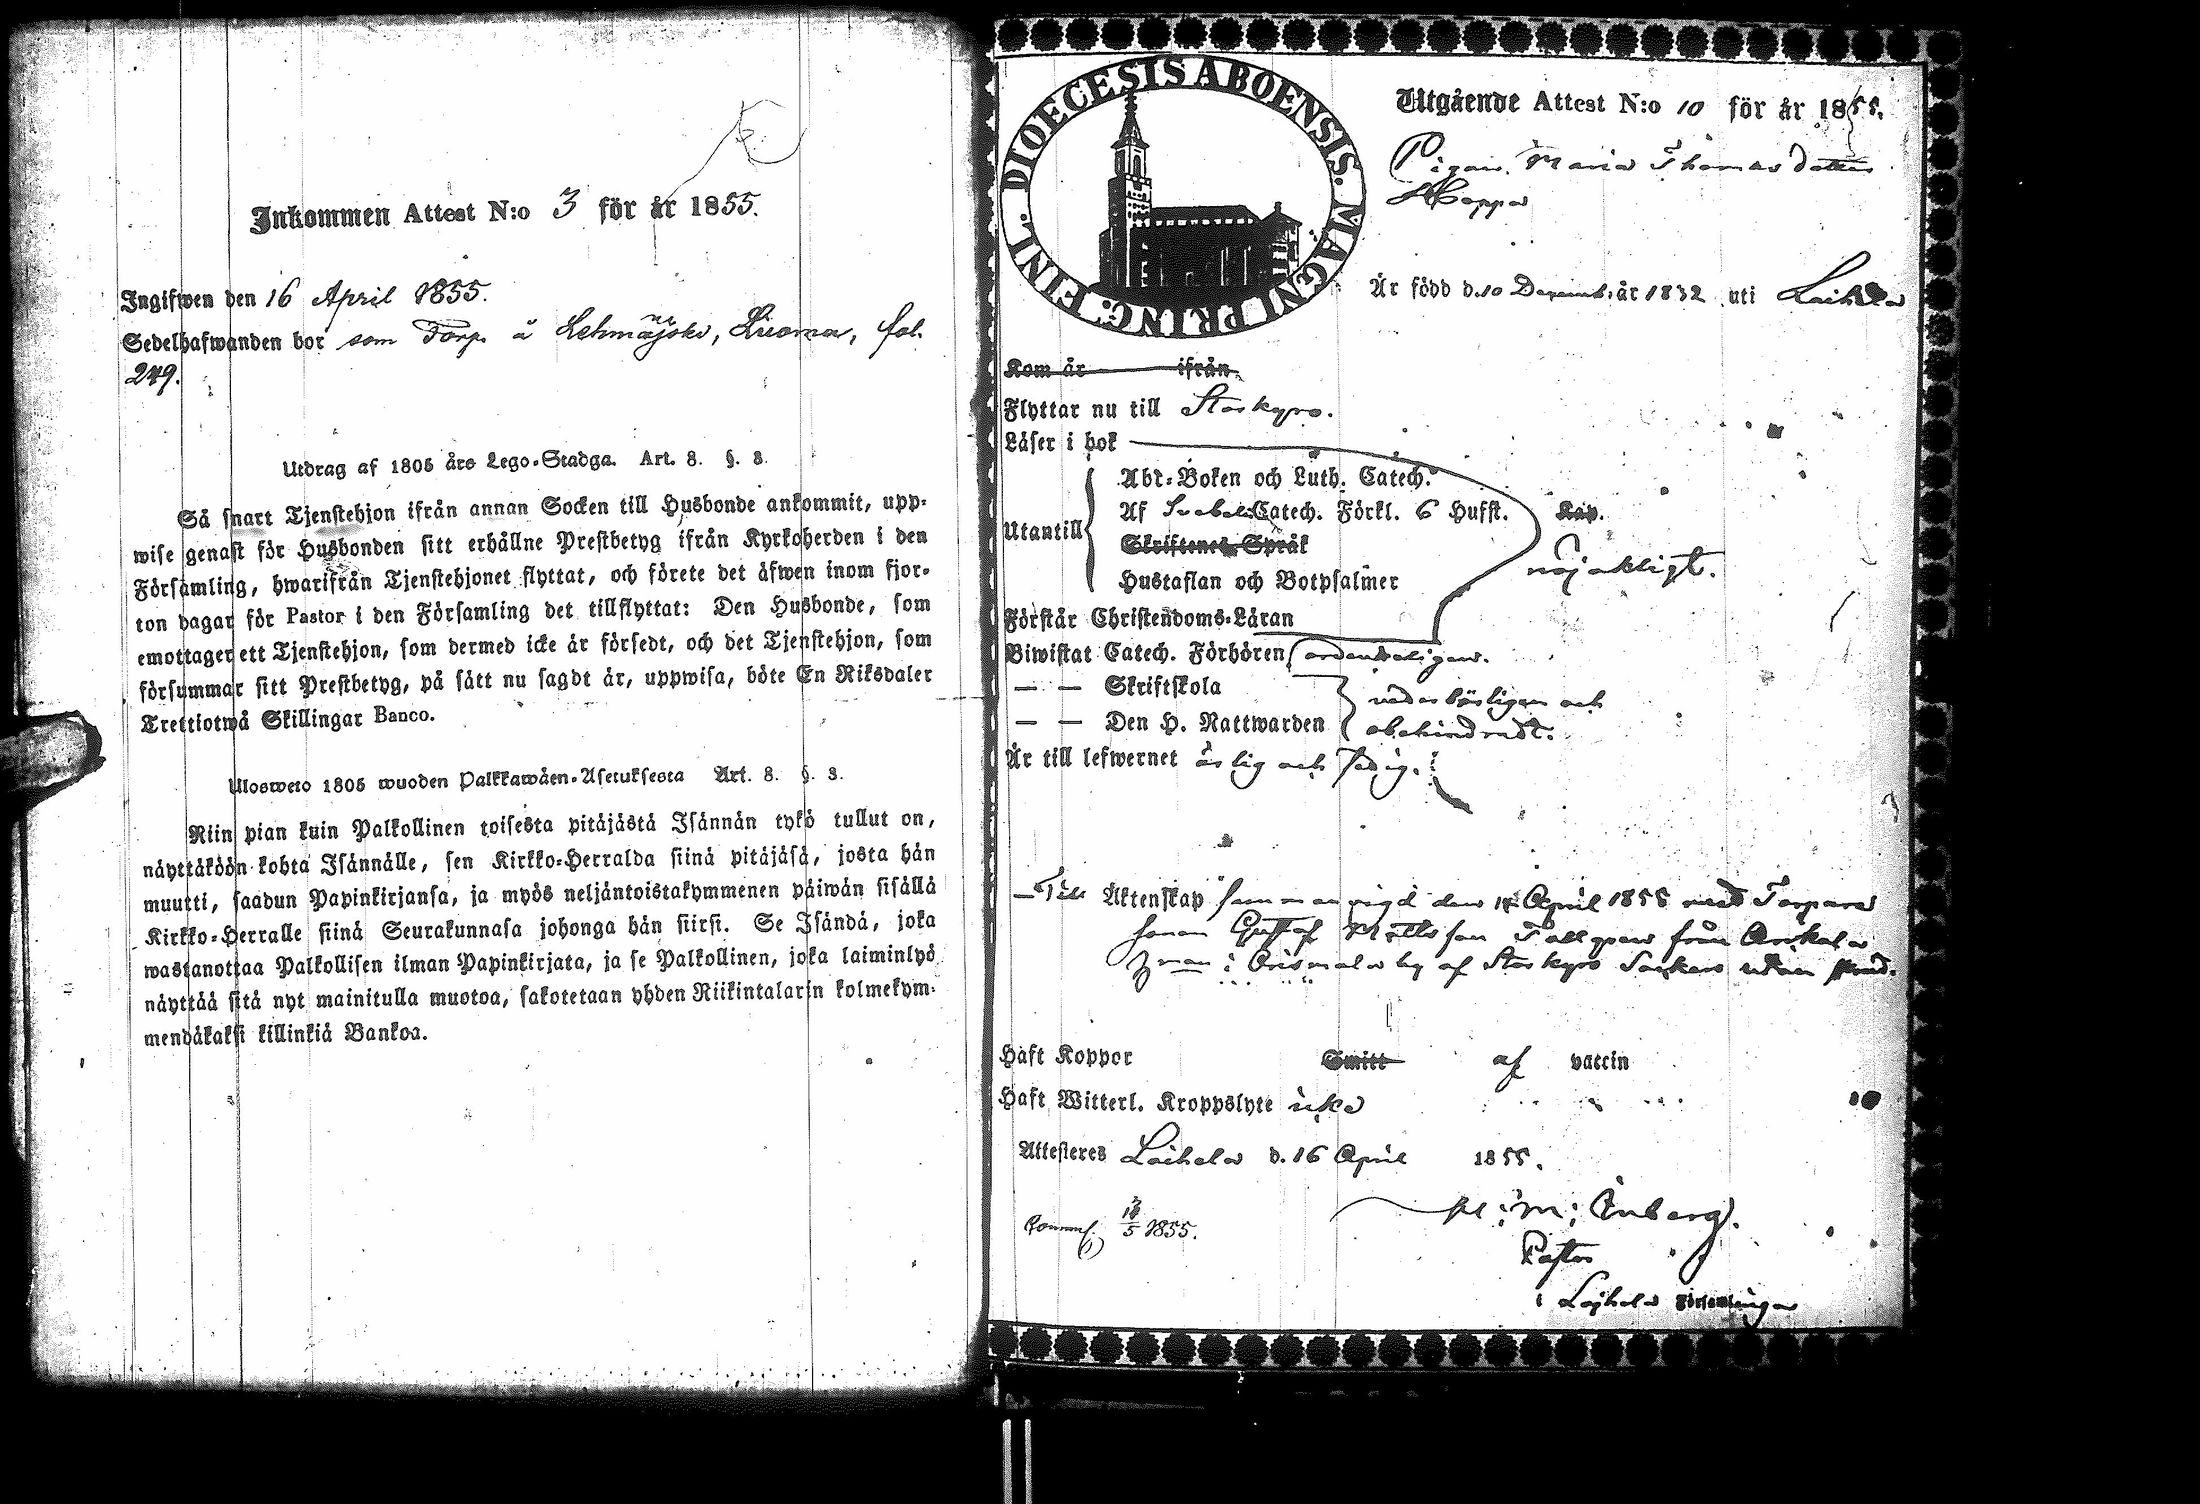 Inkommen Attest N:o 3 för år 1855.
Ingifwen den 16 April 1855.
Sedelhafwanden bor som Torp. å Lehmäjoki, Luoma, fol.
249.
Utdrag af 1805 års Lego-Stadga. Art. 8. §. 3.
Så snart Tjenstehjon ifrån annan Socken till Husbonde ankommit, upp-
wise genast för Husbonden sitt erhållne Prestbetyg ifrån Kyrkoherden i den
Församling, hwarifrån Tjenstehjonet flyttat, och förete det äfwen inom fjor-
ton dagar för Pastor i den Församling det tillflyttat: Den Husbonde, som
emottager ett Tjenstehjon, som dermed icke är försedt, och det Tjenstehjon, som
försummar sitt Prestbetyg, på sätt nu sagdt är, uppwisa, böte En Riksdaler
Trettiotwå Skillingar Banco.
Ulosweto 1805 wuoden Palkkawäen-Asetuksesta Art. 8. §. 3.
Niin pian kuin Palkollinen toisesta pitäjästä Isännän tykö tullut on,
näyttäköön kohta Isännälle, sen Kirkko-Herralda siinä pitäjäsä, josta hän
muutti, saadun Papinkirjansa, ja myös neljäntoistakymmenen päiwän sisällä
Kirkko-Herralle siinä Seurakunnasa johonga hän siirsi. Se Isändä, joka
wastanottaa Palkollisen ilman Papinkirjata, ja se Palkollinen, joka laiminlyö
näyttää sitä nyt mainitulla muotoa, sakotetaan yhden Riikintalarin kolmekym-
mendäkaksi killinkiä Bankoa.
DIOECESIS ABOENSIS. MAGNI PRINC: FINL.
Utgående Attest N:o 10 för år 1855.
Pigan Maria Thomasdotter
Hoppa
Är född d. 10 Decemb. år 1832 uti Laihela
Kom år ifrån
Flyttar nu till Storkyro.
Läser i bok
Abc-Boken och Luth. Catech.
Utantill Af Svebeli Catech. Förkl. 6 Hufst. Kap.
Skriftenes Språk
nöjaktigt.
Hustaflan och Botpsalmer
Förstår Christendoms-Läran
Biwistat Catech. Förhören ordentligen.
— — Skriftskola vederbörligen och
— — Den H. Nattwarden obehindradt.
Är till lefwernet ärlig och sedig.
— Till Äktenskap sammanvigd den April 1855 med Torpare
sonen Gustaf Mattsson Tallgren från
i Orismala by af Storkyro Socken utan
Haft Koppor Smitt af vaccin
Haft Witterl. Kroppslyte icke
Attesteres Laihela d. 16 April 1855.
5 1855.
Enberg.
Pastor
i Laihela Församlingar